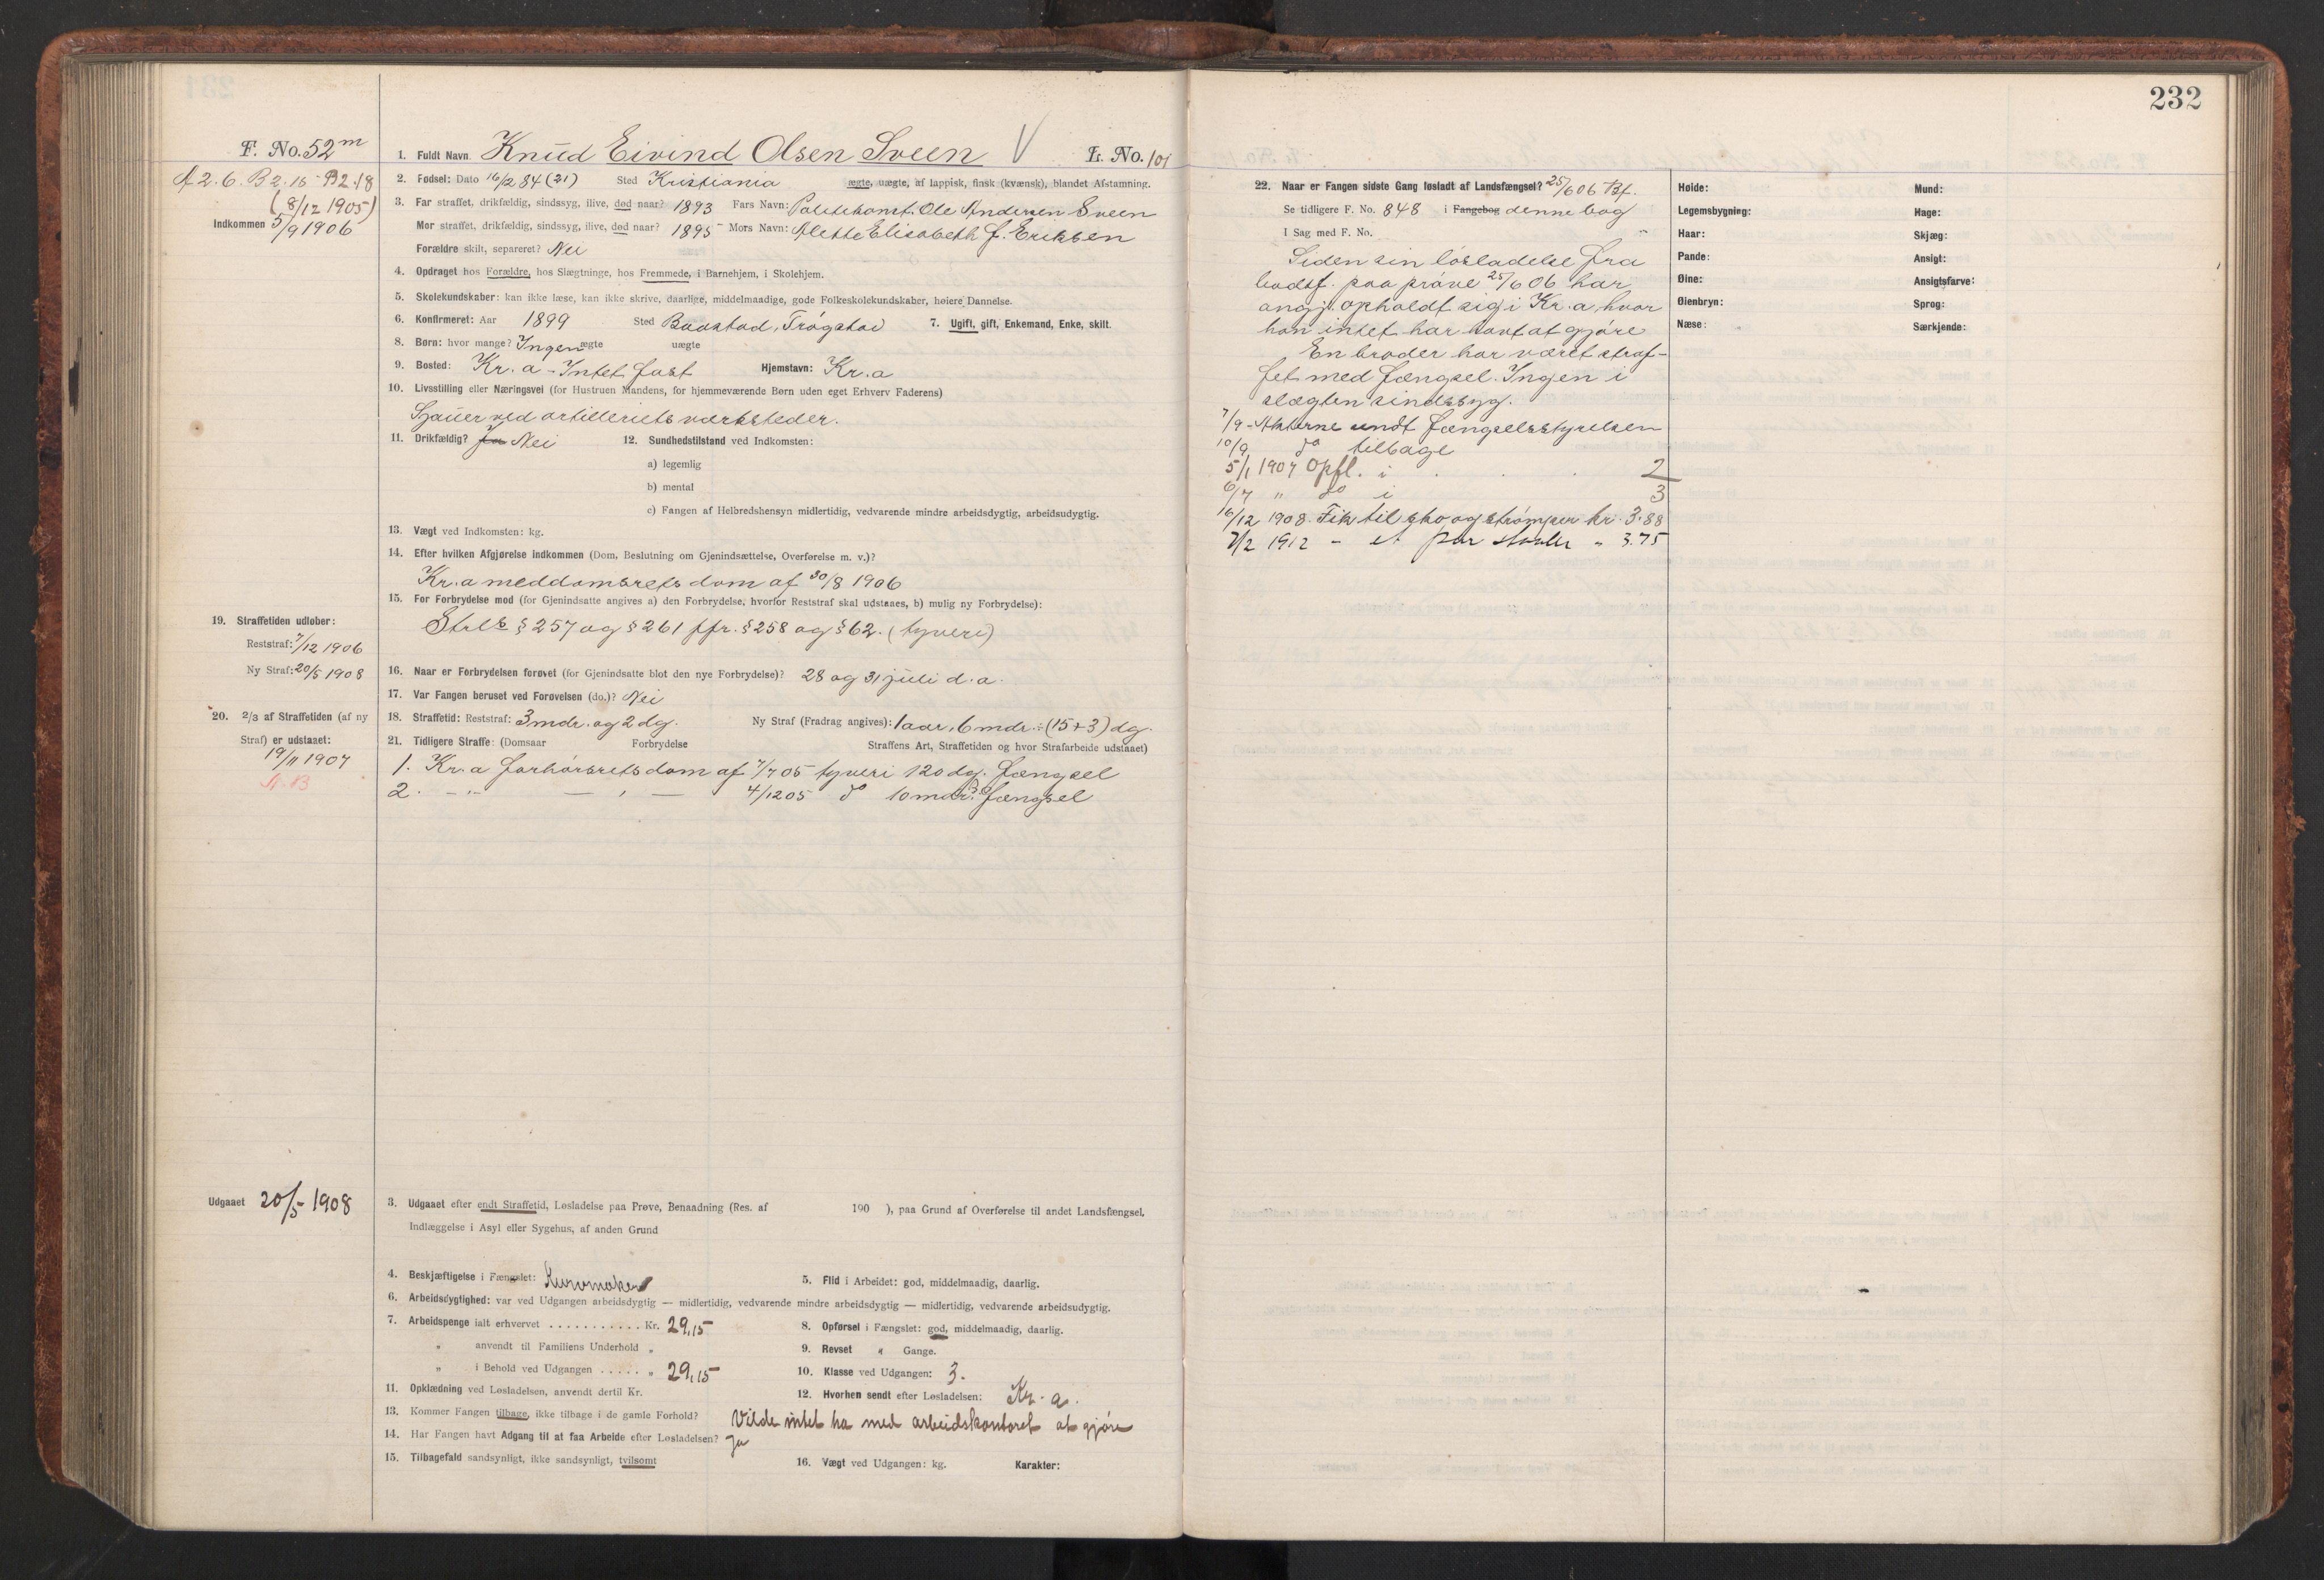 232
F. No. 52 m
A 2. 6. B 2. 15 B 2. 18
(8/12 1905)
Indkommen 5/9 1906
1. Fuldt Navn Knud Eivind Olsen Sveen V L. No. 101
2. Fødsel: Dato 16/2 84 (21) Sted Kristiania ægte, uægte, af lappisk, finsk (kvænsk), blandet Afstamning.
3. Far straffet, drikfældig, sindssyg, ilive, død naar? 1893 Fars Navn: Politikonst. Ole Andersen Sveen
Mor straffet, drikfældig, sindssyg, ilive, død naar? 1895 Mors Navn: Alette Elisabeth f. Eriksen
Forældre skilt, separeret? Nei
4. Opdraget hos Forældre, hos Slægtninge, hos Fremmede, i Barnehjem, i Skolehjem.
5. Skolekundskaber: kan ikke læse, kan ikke skrive, daarlige, middelmaadige, gode Folkeskolekundskaber, høiere Dannelse.
6. Konfirmeret: Aar 1899 Sted Baastad, Trøgstad 7. Ugift, gift, Enkemand, Enke, skilt.
8. Børn: hvor mange? Ingen ægte uægte
9. Bosted: Kr.a - Intet fast Hjemstavn: Kr.a
10. Livsstilling eller Næringsvei (for Hustruen Mandens, for hjemmeværende Børn uden eget Erhverv Faderens)
Sjauer ved artilleriets værksteder.
11. Drikfældig? Ja Nei 12. Sundhedstilstand ved Indkomsten:
a) legemlig
b) mental
c) Fangen af Helbredshensyn midlertidig, vedvarende mindre arbeidsdygtig, arbeidsudygtig.
13. Vægt ved Indkomsten: kg.
14. Efter hvilken Afgjørelse indkommen (Dom, Beslutning om Gjenindsættelse, Overførelse m. v.)?
Kr.a meddomsrets dom af 30/8 1906
15. For Forbrydelse mod (for Gjenindsatte angives a) den Forbrydelse, hvorfor Reststraf skal udstaaes, b) mulig ny Forbrydelse):
Strl's § 257 og § 261 jfr. § 258 og § 62. (tyveri)
19. Straffetiden udløber:
Reststraf: 7/12 1906
Ny Straf: 20/5 1908
16. Naar er Forbrydelsen forøvet (for Gjenindsatte blot den nye Forbrydelse)? 28 og 31 juli d.a.
17. Var Fangen beruset ved Forøvelsen (do.)? Nei
20. 2/3 af Straffetiden (af ny Straf) er udstaaet:
19/11 1907
A. B
18. Straffetid: Reststraf: 3 mdr. og 2 dg. Ny Straf (Fradrag angives): 1 aar, 6 mdr. ÷ (15+3) dg.
21. Tidligere Straffe: (Domsaar Forbrydelse Straffens Art, Straffetiden og hvor Strafarbeide udstaaet)
1. Kr.a forhørsrets dom af 7/7 05 tyveri 120 dg. fængsel
2. -"- - " - 4/12 05 do 10 mdr. fængsel
Udgaaet 20/5 1908
3. Udgaaet efter endt Straffetid, Løsladelse paa Prøve, Benaadning (Res. af 190 ), paa Grund af Overførelse til andet Landsfængsel,
Indlæggelse i Asyl eller Sygehus, af anden Grund
4. Beskjæftigelse i Fængslet: Kurvmaker 5. Flid i Arbeidet: god, middelmaadig, daarlig.
6. Arbeidsdygtighed: var ved Udgangen arbeidsdygtig — midlertidig, vedvarende mindre arbeidsdygtig — midlertidig, vedvarende arbeidsudygtig.
7. Arbeidspenge ialt erhvervet . . . . . . . . . . . Kr. 29,15 8. Opførsel i Fængslet: god, middelmaadig, daarlig.
" anvendt til Familiens Underhold " 9. Revset " Gange.
" i Behold ved Udgangen . . . . . " 29,15 10. Klasse ved Udgangen: 3.
11. Opklædning ved Løsladelsen, anvendt dertil Kr. 12. Hvorhen sendt efter Løsladelsen: Kr.a.
13. Kommer Fangen tilbage, ikke tilbage i de gamle Forhold? Vilde intet ha med arbeidskontoret at gjøre
14. Har Fangen havt Adgang til at faa Arbeide efter Løsladelsen? Ja
15. Tilbagefald sandsynligt, ikke sandsynligt, tvilsomt 16. Vægt ved Udgangen: kg. Karakter:
22. Naar er Fangen sidste Gang løsladt af Landsfængsel? 25/6 06 Bf.
Se tidligere F. No. 848 i Fangebog denne bog
I Sag med F. No. "
Siden sin løsladelse fra
bodsf. paa prøve 25/6 06 har
angjl. opholdt sig i Kr.a, hvor
han intet har havt at gjøre
En broder har været straf-
fet med fængsel. Ingen i
slægten sindssyg.
7/9 - Akterne sendt fængselsstyrelsen
10/9 do tilbage
5/1 1907 Opfl. i . . . 2
6/7 " do i 3
16/12 1908. Fik til sko og strømper kr. 3.88
7/2 1912 - et par støvler " 3.75
Høide: Mund:
Legemsbygning: Hage:
Haar: Skjæg:
Pande: Ansigt:
Øine: Ansigtsfarve:
Øienbryn: Sprog:
Næse: Særkjende: